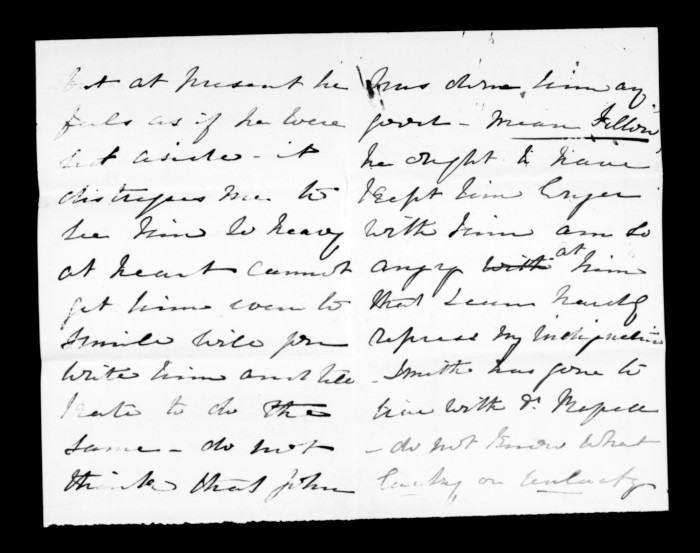 but at present he
feels as if he were
set aside - it
distresses me to
see him so heavy
at heart cannot
get him even to
smile will you
write him and tell
Kate to do the
same - do not
think that John
has done him any
good - mean fellow
he ought to have
kept him longer
with him am so
angry with at him
that I can hardly
repress my indignation
- Smith has gone to
live with Dr.
- do not know what
lucky or unlucky